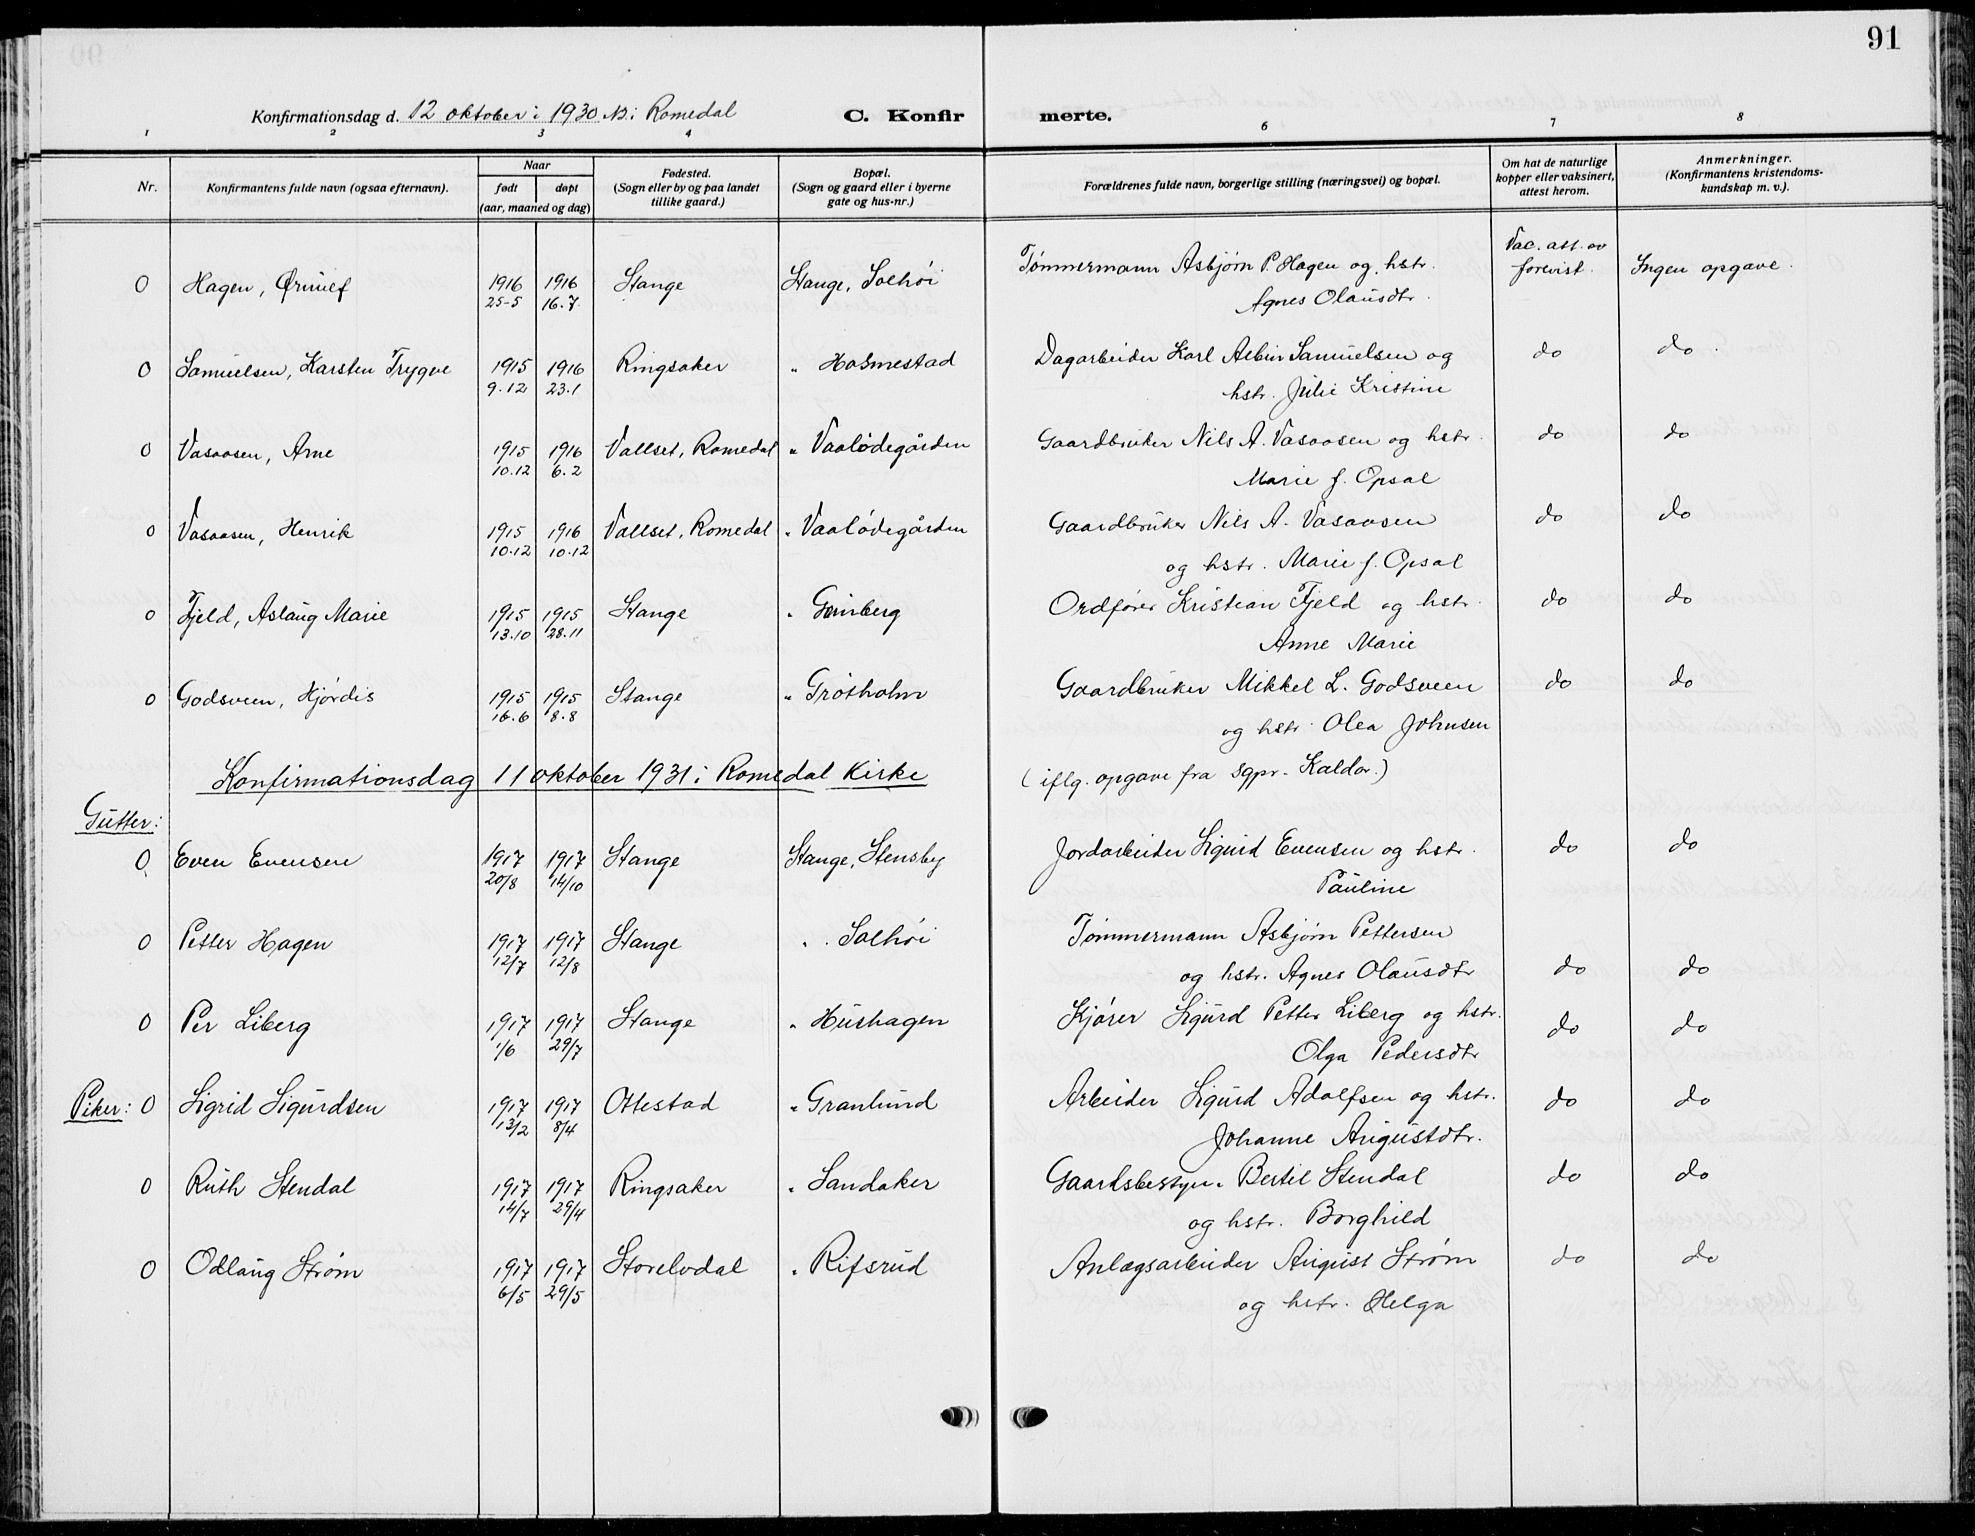 91
Konfirmationsdag d. 12 oktober i 1930 i Romedal C. Konfirmerte.
1 2 3 4 6 7 8
Nr. Konfirmantens fulde navn (ogsaa efternavn). Naar født døpt (aar, maaned og dag) Fødested. (Sogn eller by og paa landet tillike gaard.) Bopæl. (Sogn og gaard eller i byerne gate og hus-nr.) Forældrenes fulde navn, borgerlige stilling (næringsvei) og bopæl. Om hat de naturlige kopper eller vaksinert, attest herom. Anmerkninger. (Konfirmantens kristendomskundskap m. v.).
0 Hagen, 1916 1916 Stange Stange, Solhøi Tømmermann Asbjørn P. Hagen og hstr. Vac. att. av forevist. Ingen opgave.
25-5 16.7 Agnes Olausdtr.
0 Samuelsen, Karsten Trygve 1915 1916 Ringsaker " Holmestad Dagarbeider Karl Albin Samuelsen og do do
9.12 23.1 hstr. Julie Kristine
0 Vasaasen, Arne 1915 1916 Vallset, Romedal " Vaalødegården Gaardbruker Nils A. Vasaasen og hstr. do do
10.12 6.2 Marie f. Opsal
0 Vasaasen, Henrik 1915 1916 Vallset, Romedal " Vaalødegården Gaardbruker Nils A. Vasaasen do do
10.12 10.12 og hstr. Marie f. Opsal
0 Fjeld, Aslaug Marie 1915 1915 Stange " Ordfører Kristian Fjeld og hstr. do do
13.10 28.11 Anne Marie
0 Godsveen, Hjørdis 1915 1915 Stange " Grøtholm Gaardbruker Mikkel L. Godsveen do do
16.6 8.8 og hstr. Olea Johnsen
Konfirmationsdag 11 oktober 1931 i Romedal Kirke (iflg. opgave fra sgpr. Kaldor.)
Gutter:
0 Even Evensen 1917 1917 Stange Stange, Stensby Jordarbeider Sigurd Evensen og hstr. do do
20/8 14/10 Pauline
0 Petter Hagen 1917 1917 Stange " Solhøi Tømmermann Asbjørn Pettersen
12/7 12/8 og hstr. Agnes Olausdtr do do
0 Per Liberg 1917 1917 Stange " Hushagen Kjører Sigurd Petter Liberg og hstr. do do
1/6 29/7 Olga Pedersdtr
Piker: 0 Sigrid Sigurdsen 1917 1917 Ottestad " Granlund Arbeider Sigurd Adolfsen og hstr. do do
13/2 8/4 Johanne Augustdtr.
0 Ruth Stendal 1917 1917 Ringsaker " Sandaker Gaardsbestyr. Bertil Stendal do do
14/7 29/4 og hstr. Borghild
0 Odlaug Strøm 1917 1917 Storelvdal " Rifsrud Anlægsarbeider August Strøm do do
6/5 29/5 og hstr. Helga